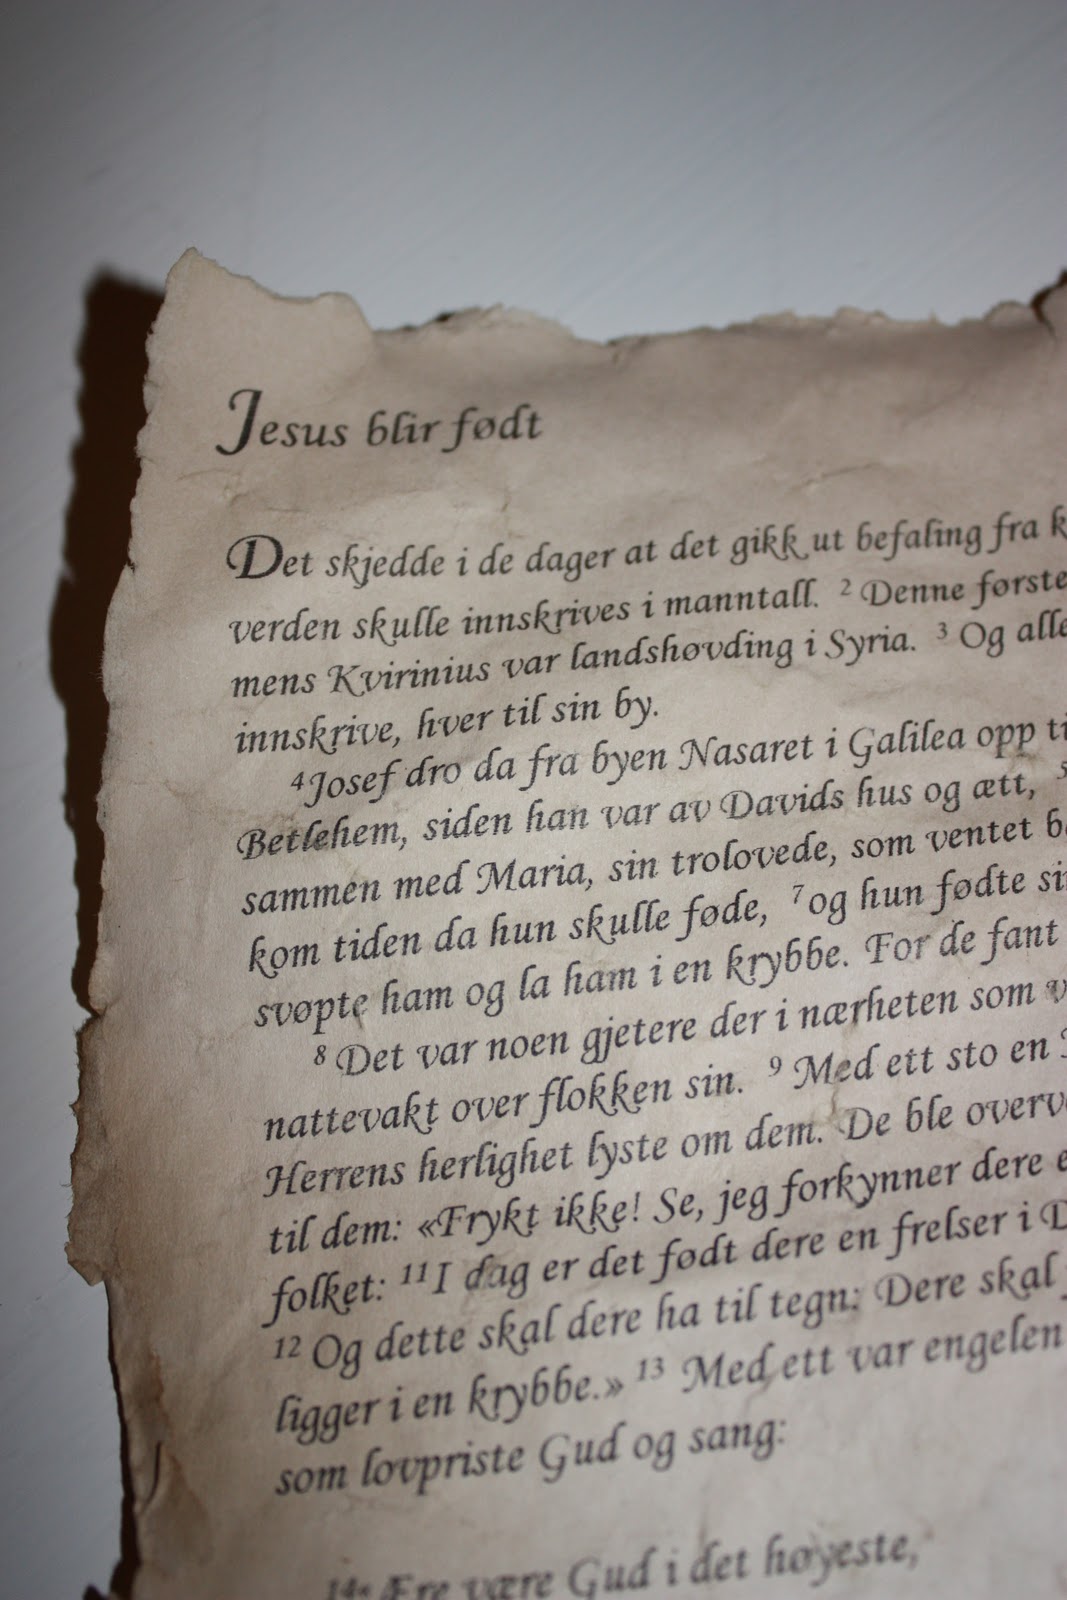 Jesus blir født
Det skjedde i de dager at det gikk ut befaling fra k
verden skulle innskrives i manntall. ² Denne første
mens Kvirinius var landshøvding i Syria. ³ Og alle
innskrive, hver til sin by.
⁴Josef dro da fra byen Nasaret i Galilea opp ti
Betlehem, siden han var av Davids hus og ætt, ⁵
sammen med Maria, sin trolovede, som ventet ba
kom tiden da hun skulle føde, ⁷og hun fødte sin
svøpte ham og la ham i en krybbe. For de fant
⁸ Det var noen gjetere der i nærheten som v
nattevakt over flokken sin. ⁹ Med ett sto en
Herrens herlighet lyste om dem. De ble overve
til dem: «Frykt ikke! Se, jeg forkynner dere e
folket: ¹¹I dag er det født dere en frelser i D
¹² Og dette skal dere ha til tegn: Dere skal
ligger i en krybbe.» ¹³ Med ett var engelen
som lovpriste Gud og sang:
¹⁴« Ære være Gud i det høyeste,